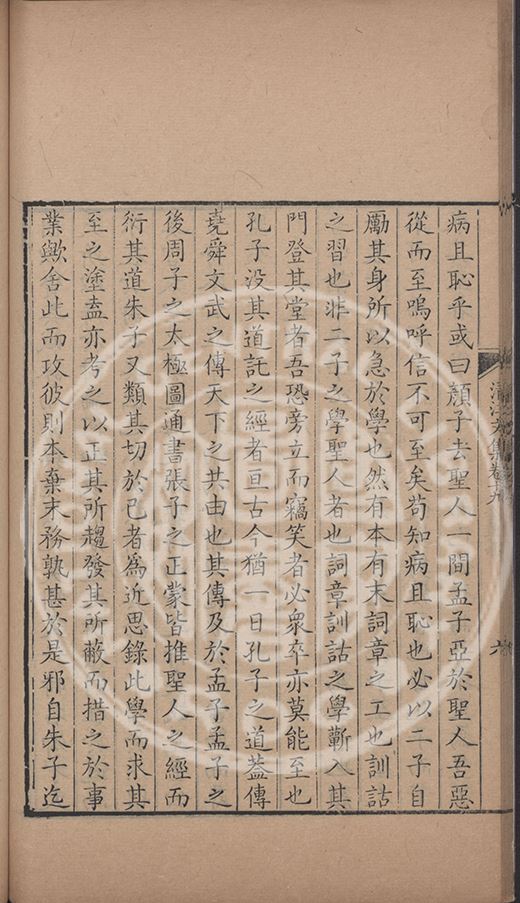 病且恥乎或曰顏子去聖人一間孟子亞於聖人吾惡
從而至嗚呼信不可至矣苟知病且恥也必以二子自
勵其身所以急於學也然有本有末詞章之工也訓詁
之習也非二子之學聖人者也詞章訓詁之學蘄入其
門登其堂者吾恐旁立而竊笑者必衆卒亦莫能至也
孔子没其道託之經者亘古今猶一日孔子之道葢傳
堯舜文武之傳天下之共由也其傳及於孟子孟子之
後周子之太極圖通書張子之正蒙皆推聖人之經而
衍其道朱子又類其切於已者爲近思錄此學而求其
至之塗盍亦考之以正其所趨發其所蔽而措之於事
業歟舍此而攻彼則本棄末務孰甚於是邪自朱子迄